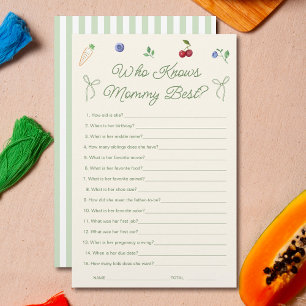 Who Knows
Mommy Best?
1. How old is she?
2. When is her birthday?
3. What is her middle name?
4. How many siblings does she have?
5. What is her favorite movie?
6. What is her favorite food?
7. What is her favorite animal?
8. What is her shoe size?
9. How did she meet the father-to-be?
10. What is her favorite color?
11. What was her first job?
12. What was her first car?
13. What is her pregnancy craving?
14. When is her due date?
15. How many kids does she want?
NAME TOTAL